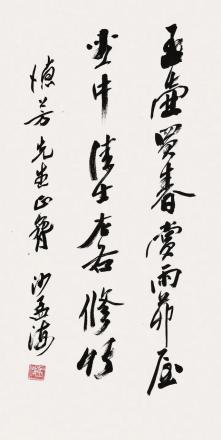 玉壶買春賞雨茆屋
坐中佳士左右修竹
懷芳先生正腕 沙孟海